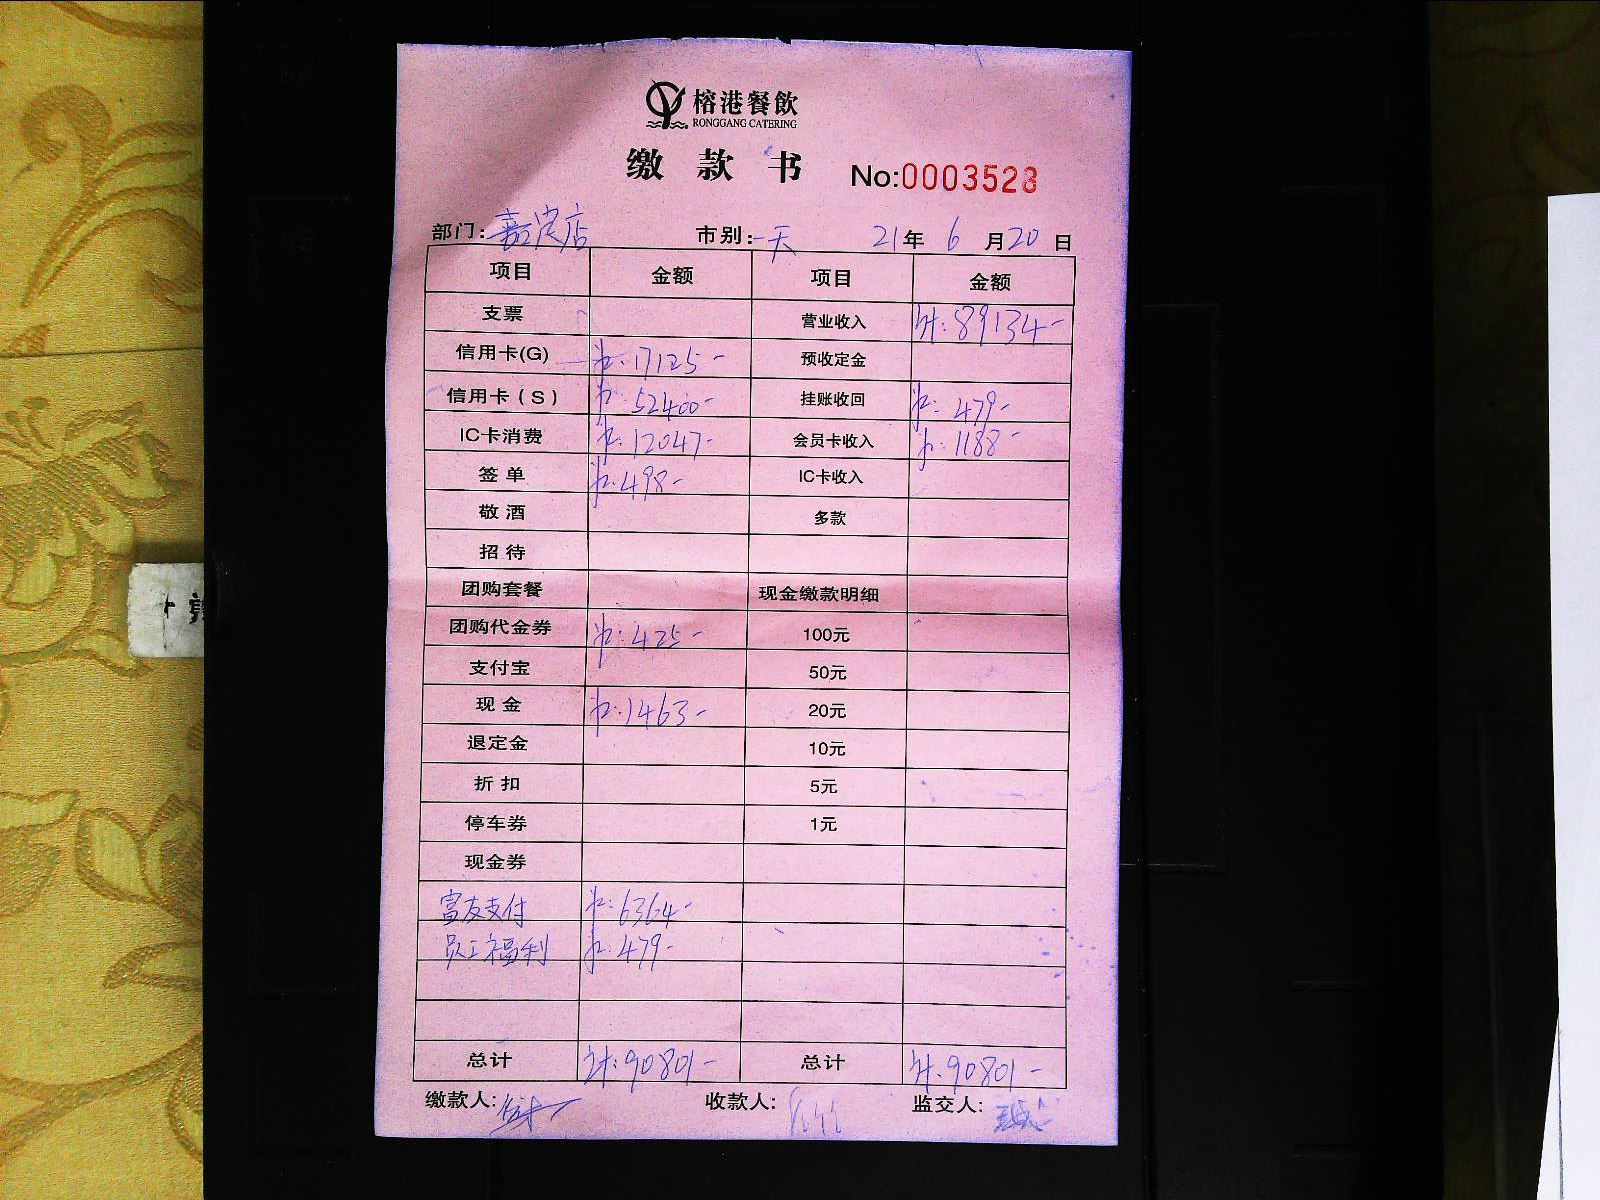 榕港餐飲
RONGGANG CATERING
缴 款 书 No:0003528
部门: 嘉茂店 市别: 一天 21年 6月20日
项目 金额 项目 金额
支票 营业收入 计: 89134-
信用卡(G) 计: 17125- 预收定金
信用卡(S) 计: 52400- 挂账收回 计: 479-
IC卡消费 计: 12047- 会员卡收入 计: 1188-
签单 计: 498- IC卡收入
敬酒 多款
招待
团购套餐 现金缴款明细
团购代金券 计: 425- 100元
支付宝 50元
现金 计: 1463- 20元
退定金 10元
折扣 5元
停车券 1元
现金券
富友支付 计: 6364-
员工福利 计: 479-
总计 计: 90801- 总计 计: 90801-
缴款人: 收款人: 监交人: